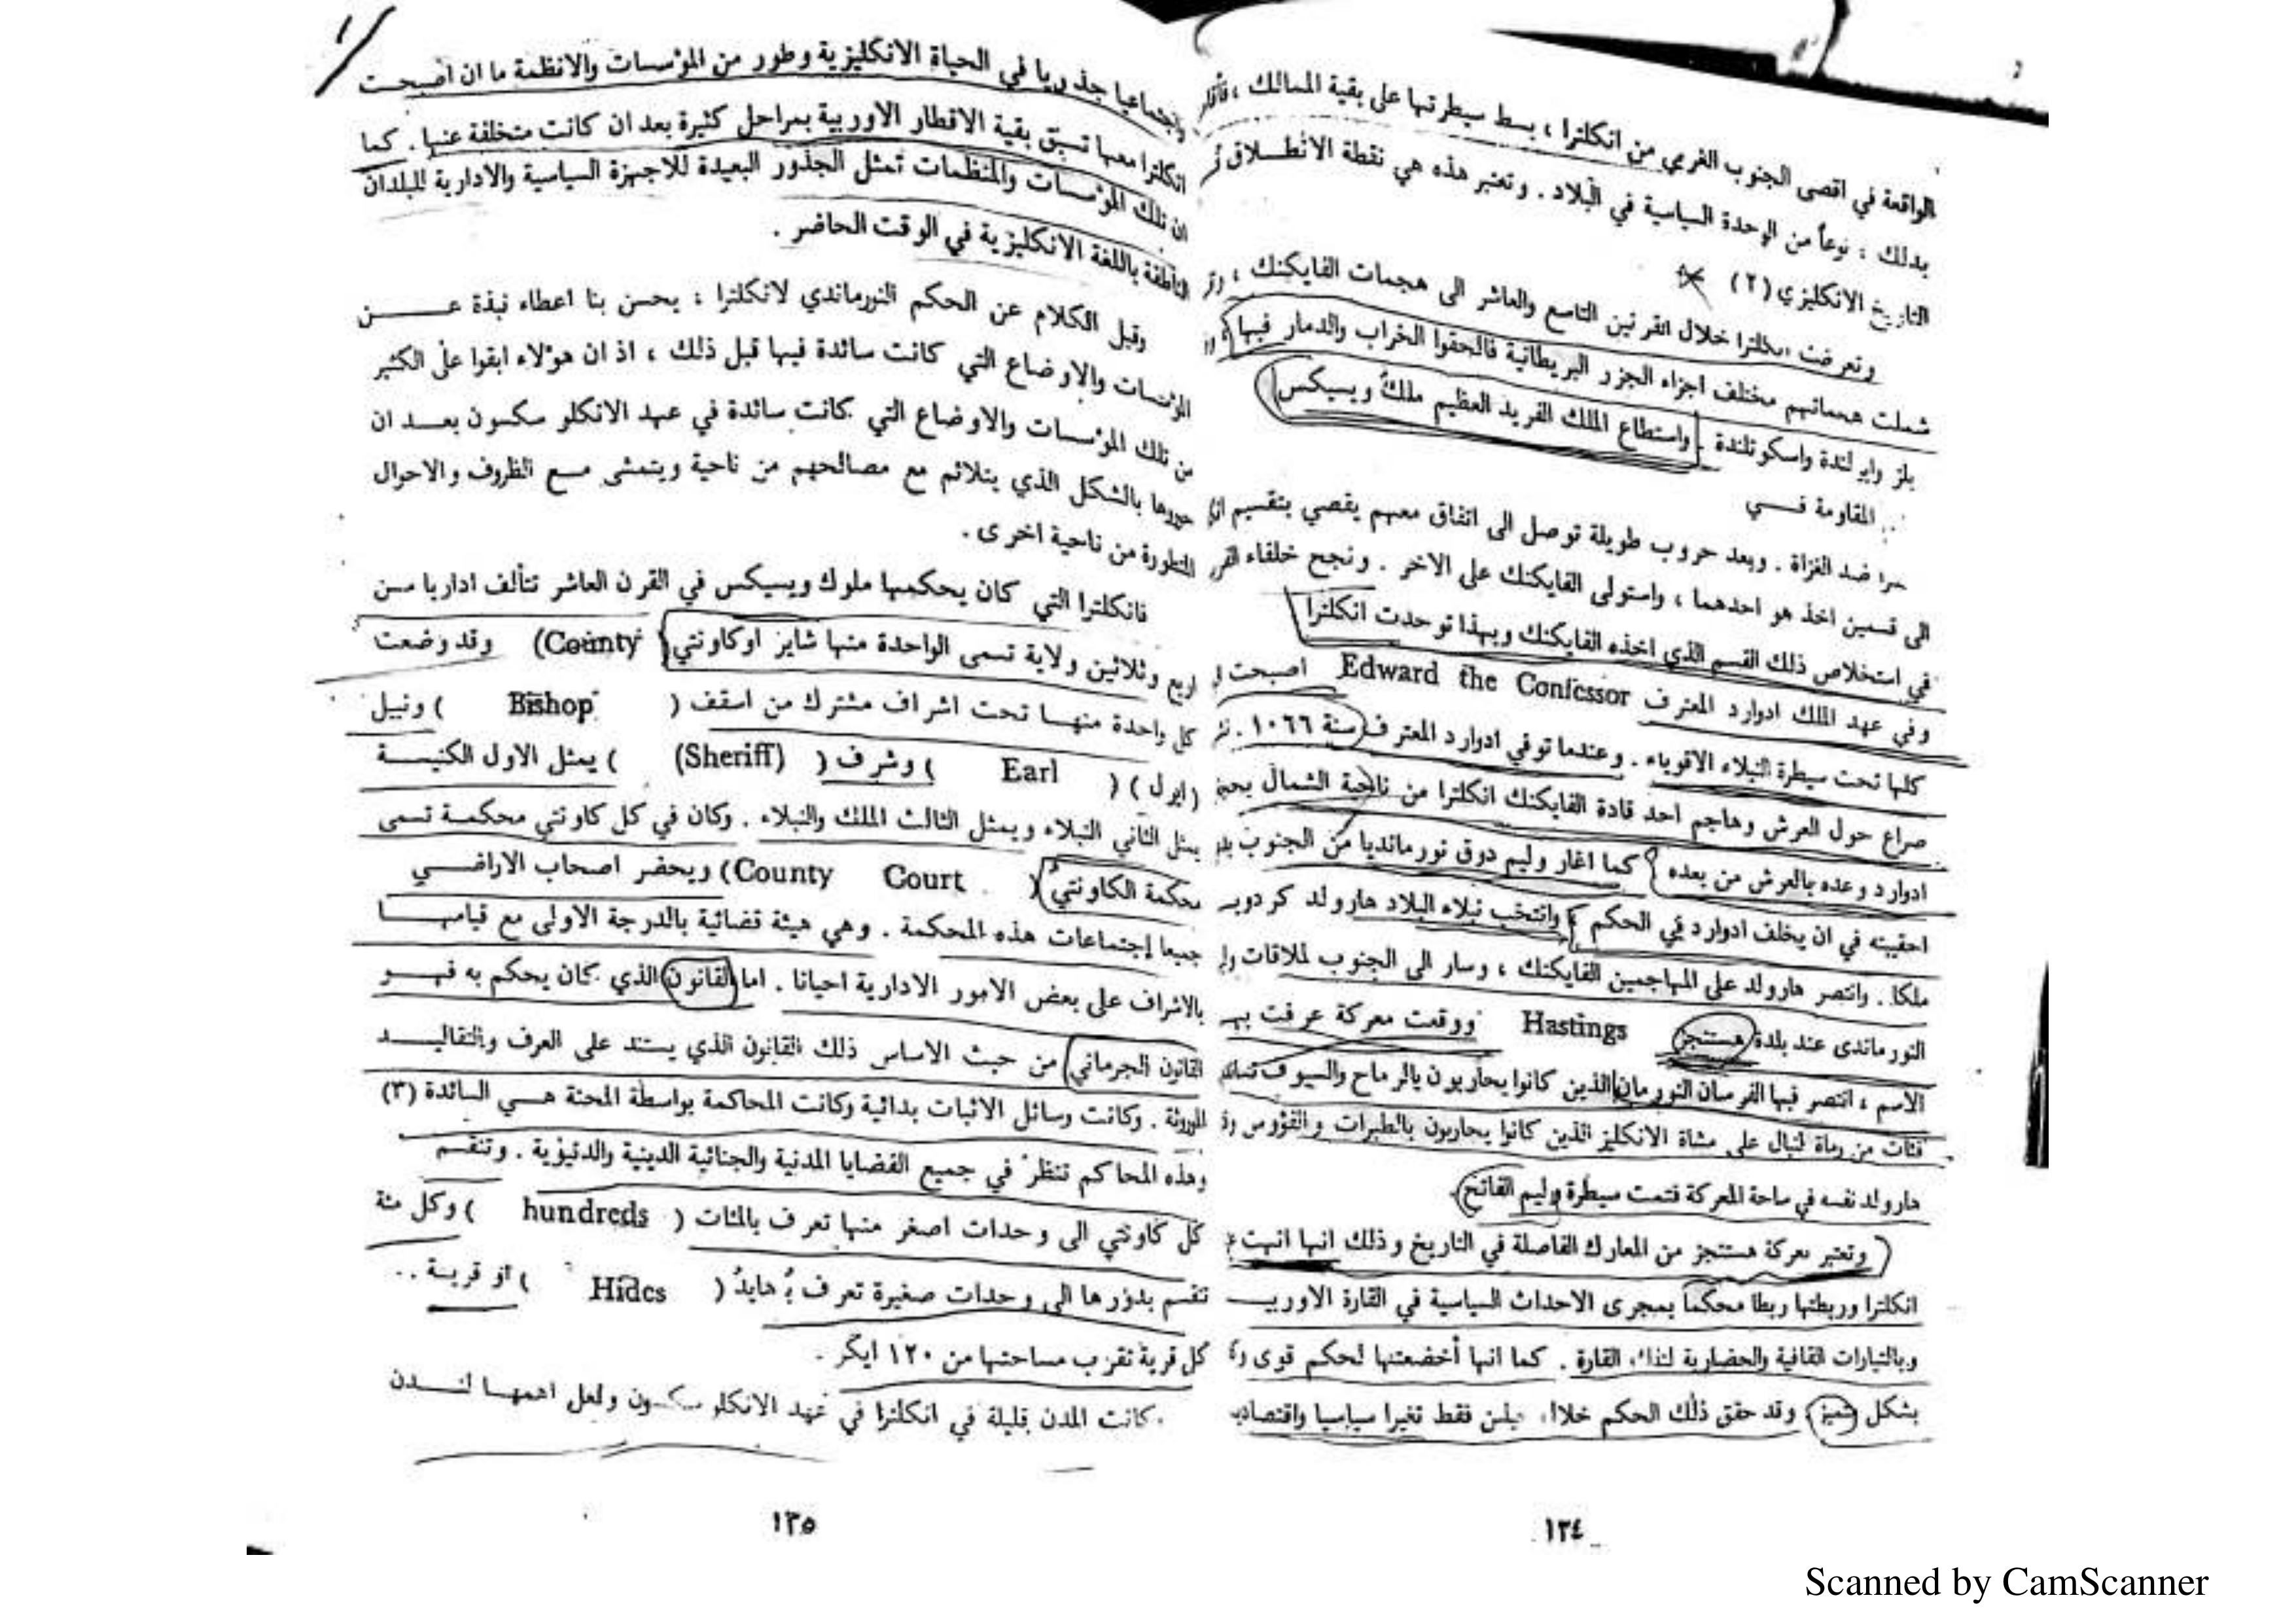 الواقعة في اقصى الجنوب الغربي من انكلترا ، بسط سيطرتها على بقية الممالك ،
بذلك ، نوعاً من الوحدة السياسية في البلاد . وتعتبر هذه هي نقطة الانطلاق
التاريخ الانكليزي (٢)
وتعرضت انكلترا خلال القرنين التاسع والعاشر الى هجمات الفايكنك ،
شملت هجماتهم مختلف اجزاء الجزر البريطانية فالحقوا الخراب والدمار فيها ،
بلز وايرلندة واسكوتلندة . واستطاع الملك الفريد العظيم ملك ويسيكس
المقاومة فـــي
ضد الغزاة . وبعد حروب طويلة توصل الى اتفاق معهم يقضي بتقسيم
الى قسمين اخذ هو احدهما ، واستولى الفايكنك على الاخر . ونجح خلفاء
في استخلاص ذلك القسم الذي اخذه الفايكنك وبهذا توحدت انكلترا
وفي عهد الملك ادوارد المعترف Edward the Confessor اصبحت
كلها تحت سيطرة النبلاء الاقوياء . وعندما توفي ادوارد المعترف سنة ١٠٦٦ .
صراع حول العرش وهاجم احد قادة الفايكنك انكلترا من ناحية الشمال
ادوارد وعده بالعرش من بعده كما اغار وليم دوق نورمانديا من الجنوب
احقيته في ان يخلف ادوارد في الحكم وانتخب نبلاء البلاد هارولد
ملكا . وانتصر هارولد على المهاجمين الفايكنك ، وسار الى الجنوب لملاقات
النورماندى عند بلدة هستنجز Hastings ووقعت معركة عرفت
الاسم ، انتصر فيها الفرسان النورمان الذين كانوا يحاربون بالرماح والسيوف
فئات من رماة لنبال على مشاة الانكليز الذين كانوا يحاربون بالطبرات والفؤوس
هارولد نفسه في ساحة المعركة فتمت سيطرة وليم الفاتح .
وتعتبر معركة هستنجز من المعارك الفاصلة في التاريخ وذلك انها انهت
انكلترا وربطتها ربطا محكما بمجرى الاحداث السياسية في القارة
وبالتيارات الثقافية والحضارية لتلك القارة . كما انها أخضعتها لحكم قوى
بشكل متميز وقد حقق ذلك الحكم ليس فقط تغيرا سياسيا
١٣٤
واجتماعيا جذريا في الحياة الانكليزية وطور من المؤسسات والانظمة ما ان اصبحت
انكلترا معها تسبق بقية الاقطار الاوربية بمراحل كثيرة بعد ان كانت متخلفة عنها . كما
ان تلك المؤسسات والمنظمات تمثل الجذور البعيدة للاجهزة السياسية والادارية للبلدان
الناطقة باللغة الانكليزية في الوقت الحاضر .
وقبل الكلام عن الحكم النورماندي لانكلترا ، يحسن بنا اعطاء نبذة عـــن
المؤسسات والاوضاع التي كانت سائدة فيها قبل ذلك ، اذ ان هؤلاء ابقوا على الكثير
من تلك المؤسسات والاوضاع التي كانت سائدة في عهد الانكلو سكسون بعـد ان
حوروها بالشكل الذي يتلائم مع مصالحهم من ناحية ويتمشى مـع الظروف والاحوال
المتطورة من ناحية اخرى .
فانكلترا التي كان يحكمها ملوك ويسيكس في القرن العاشر تتألف اداريا مـن
اربع وثلاثين ولاية تسمى الواحدة منها شاير اوكاونتي (County) وقد وضعت
كل واحدة منهـا تحت اشراف مشترك من اسقف ( Bishop ) ونبيل
(ايرل) ( Earl ) وشرف ( Sheriff ) يمثل الاول الكنيسـة
يمثل الثاني النبلاء ويمثل الثالث الملك والنبلاء . وكان في كل كاونتي محكمـة تسمى
محكمة الكاونتي ( County Court ) ويحضر اصحاب الاراضـي
جميعا إجتماعات هذه المحكمة . وهي هيئة قضائية بالدرجة الاولى مع قيامهـا
بالاشراف على بعض الامور الادارية احيانا . اما القانون الذي كان يحكم به فهـو
القانون الجرماني من حيث الاساس ذلك القانون الذي يستند على العرف والتقاليـد
الموروثة . وكانت وسائل الاثبات بدائية وكانت المحاكمة بواسطة المحنة هـي السائدة (٣)
وهذه المحاكم تنظر في جميع القضايا المدنية والجنائية الدينية والدنيوية . وتنقسم
كل كاونتي الى وحدات اصغر منها تعرف بالمئات ( hundreds ) وكل مئة
تنقسم بدورها الى وحدات صغيرة تعرف بـ هايد ( Hides ) او قريـة ..
كل قرية تقرب مساحتها من ١٢٠ ايكر .
كانت المدن قليلة في انكلترا في عهد الانكلو سكسون ولعل اهمهـا لنـدن
١٣٥
Scanned by CamScanner